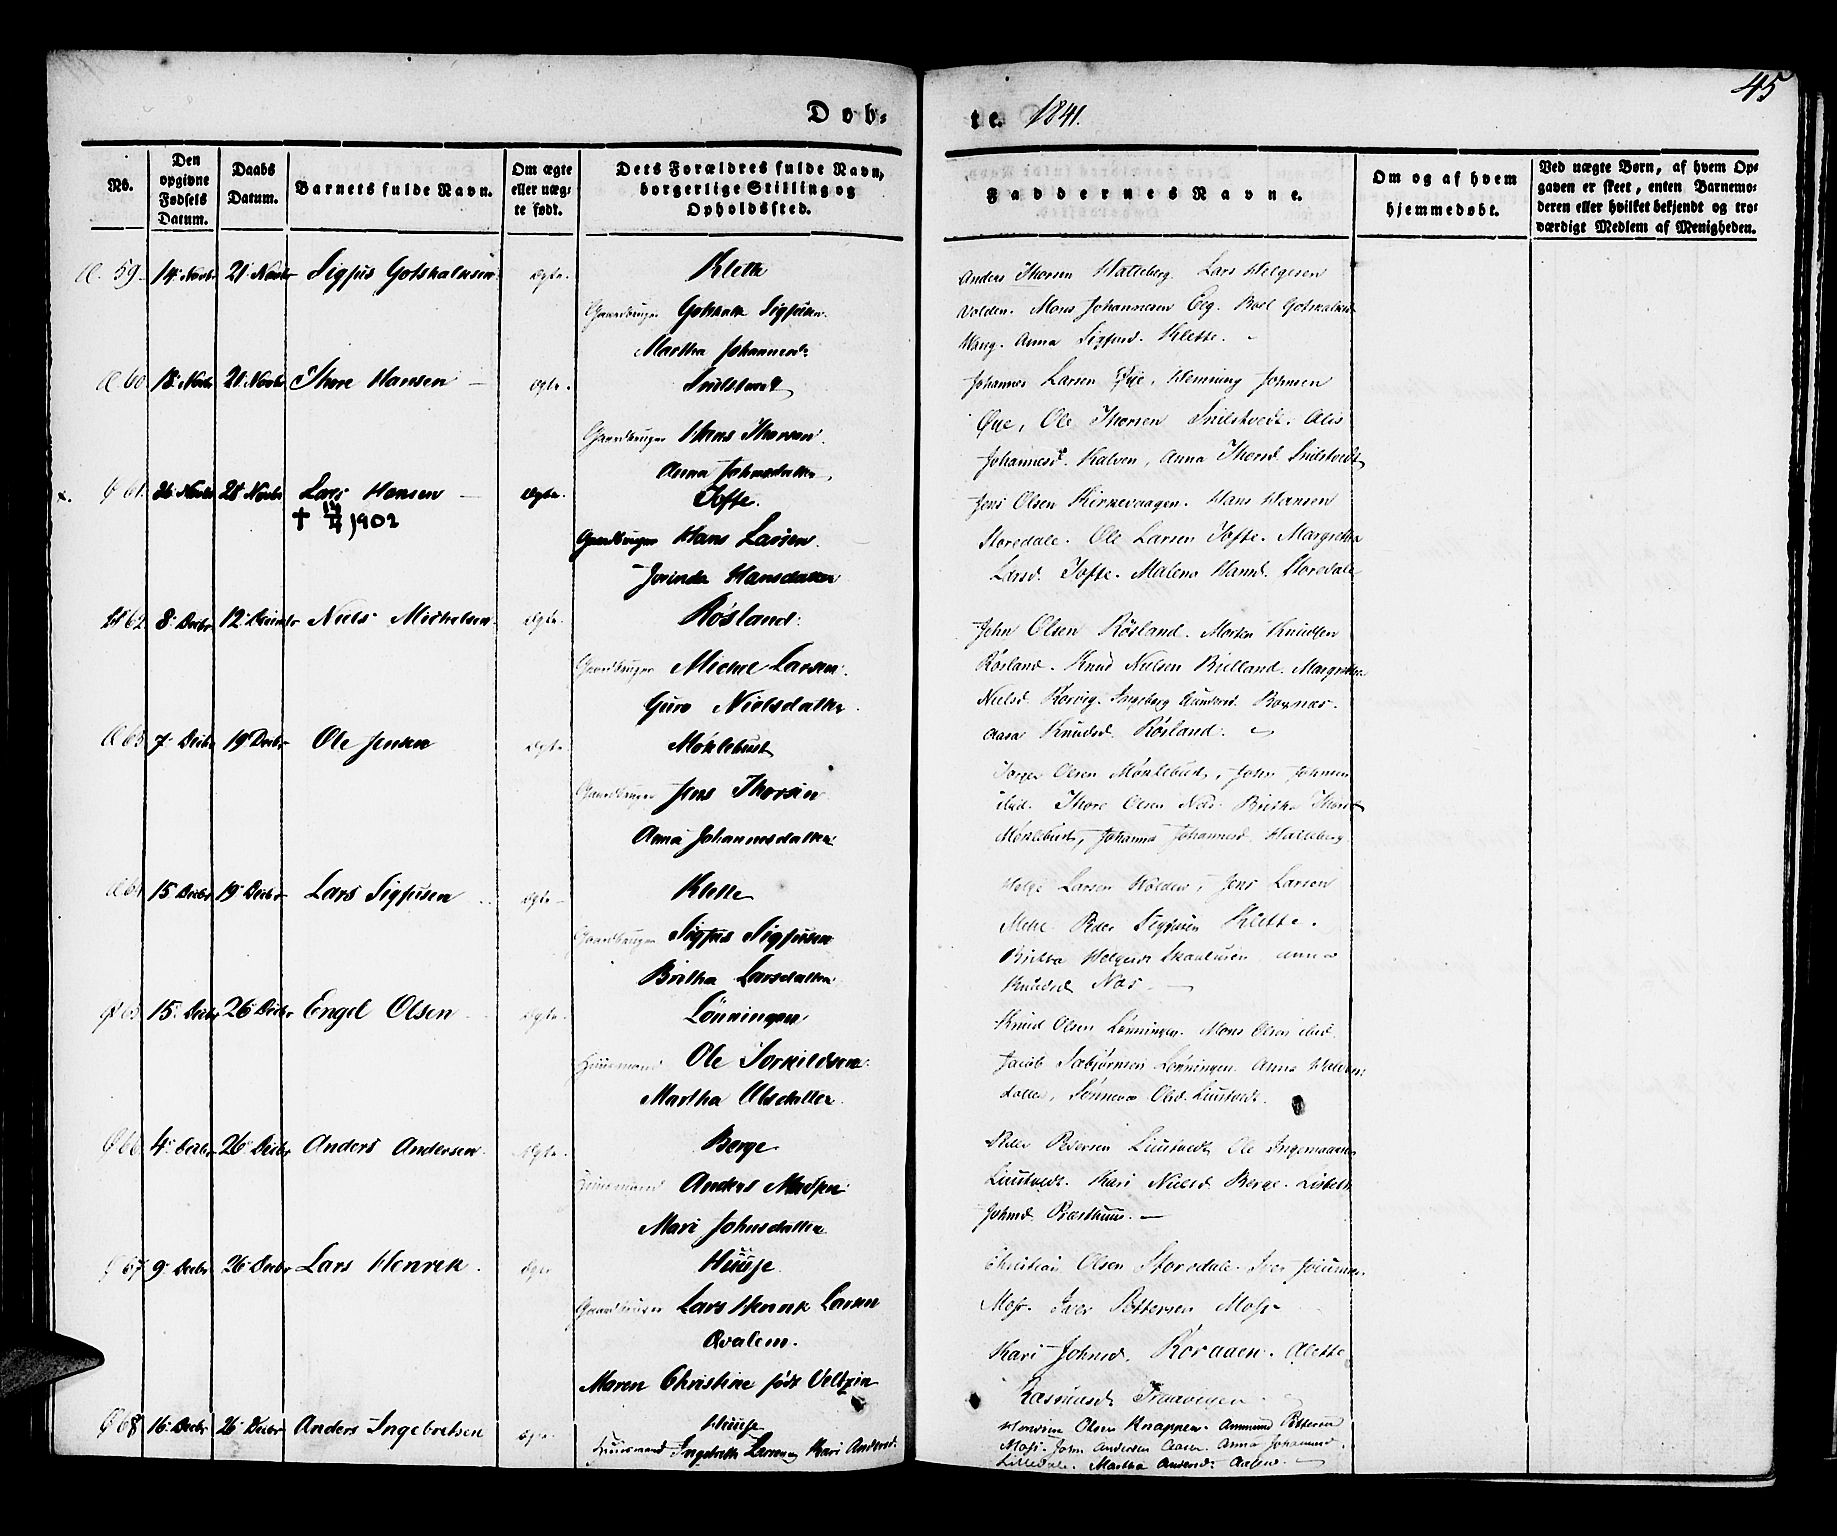 45
Døb-
te. 1841.
No.
Den opgivne Fødsels Datum.
Daabs Datum.
Barnets fulde Navn.
Om ægte eller uæg-te født.
Dets Forældres fulde Navn, borgerlige Stilling og Opholdssted.
Faddernes Navne.
Om og af hvem hjemmedøbt.
Ved uægte Børn, af hvem Op-gaven er skeet, enten Barnemo-deren eller hvilket bekjendt og tro-værdigt Medlem af Menigheden.
59. 14 Novbr 21 Novbr Sigfus Gotskalksen Ægte. Klette
Gaardbruger Gotskalk Sigfusen.
Martha Johannesd.
Anders Thorsen Hatleberg. Lars Helgesen
Volden. Mons Johannesen Eeg. Boel Gotskalksd.
Vang. Anna Sigfusd. Klette.
60 18 Novbr 21 Novbr Thore Hansen Ægte. Snilstvedt
Gaardbruger Hans Thorsen.
Anna Johnsdatter.
Johannes Larsen Øye, Henning Johnsen
Øye, Ole Thorsen Snilstvedt. Alis
Johannesd. Kalven, Anna Thorsd. Snilstvedt
x. 61. 26 Novbr 28 Novbr Lars Hansen Ægte. Tofte.
† 1902
Gaardbruger Hans Larsen.
Jorinde Hansdatter
Jens Olsen Kirkevaagen. Hans Hansen
Storedale. Ole Larsen Tofte. Margretha
Larsd. Tofte. Malena Hansd. Storedale
62. 8 Decbr 12 Decembr Niels Michelsen. Ægte. Røsland.
Gaardbruger Michel Larsen.
Guro Nielsdatter.
John Olsen Røsland. Morten Knudsen
Røsland. Knud Nielsen Bielland. Margretha
Nielsd. Korvig. Ingeborg Bognæs.
Aasa Knudsd. Røsland.
63 7 Decbr 19 Decbr Ole Jensen Ægte Møklebust
Gaardbruger Jens Thorsen
Anna Johannesdatter.
Olsen Møklebust, John Johnsen
ibid. Thore Olsen Næs. Britha Thorsd
Møklebust, Johanna Johannesd. Hatleberg
64 15 Decbr 19 Decbr Lars Sigfusen Ægte Klette
Gaardbruger Sigfus Sigfusen
Britha Larsdatter
Helge Larsen Volden, Jens Larsen
Peder Sigfusen Klette.
Britha Helgesd. Anna
Knudsd Næs.
65 15 Decbr 26 Decbr Engel Olsen Ægte. Lønningen
Huusmand Ole Torkildsen.
Martha Olsdatter.
Knud Olsen Lønningen. Mons Olsen ibid.
Jacob Torbjørnsen Lønningen. Anna
datter, Sønneva Olsd. Liustvedt.
66 4 Decbr 26 Decbr Anders Andersen. Ægte. Berge
Huusmand Anders Madsen
Mari Johnsdatter
Peder Pedersen Liustvedt Ole
Liustvedt. Kari Nielsd. Berge. Lisbeth
Johnsd. Præsthuus.
67 9 Decbr 26 Decbr Lars Henrik. Ægte Huuse.
Gaardbruger Lars Henrik Larsen
Qvalem.
Maren Christine født Veltzin
Christian Olsen Storedale. Iver
Mosf. Iver Pettersen Mosf
Kari Johnsd. Røraaen. Alette
Rasmusd Traavigen
68 16 Decbr 26 Decbr Anders Ingebretsen Ægte Huuse
Huusmand Ingebreth Larsen Kari Andersd.
Hendrik Olsen Knappen. Ammund Pettersen
Mosf. John Andersen Aasen. Anna Johannesd.
Lilledale. Martha Andersd. Aasen.